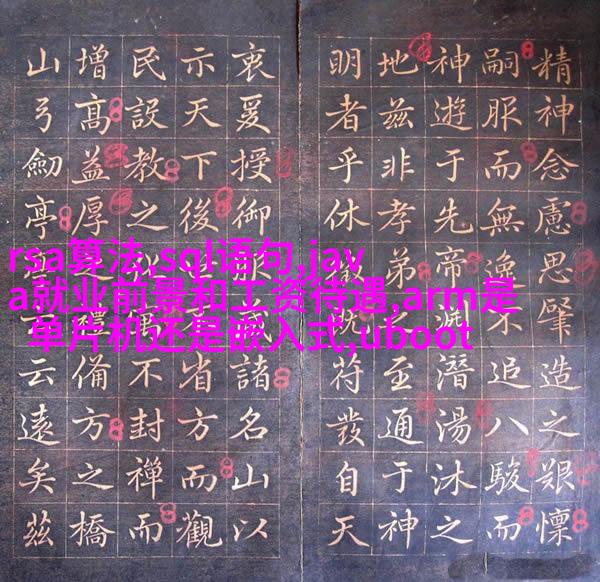 精神念慮思肇造之艱懍
嗣服而無逸不追八駿而
神遊于先帝淵潛湯沐之
地茲非孝弟至通于神
明者乎休徵既符發自天
衷爰授御諸名山以
示天下後省方而觀
民設教之寓不封禪而
增高益厚禮備方之橋
山弓劒亭云遠矣茲
rsa算法,sql语句,jav
a就业前景和工资待遇,arm是
单片机还是嵌入式,uboot